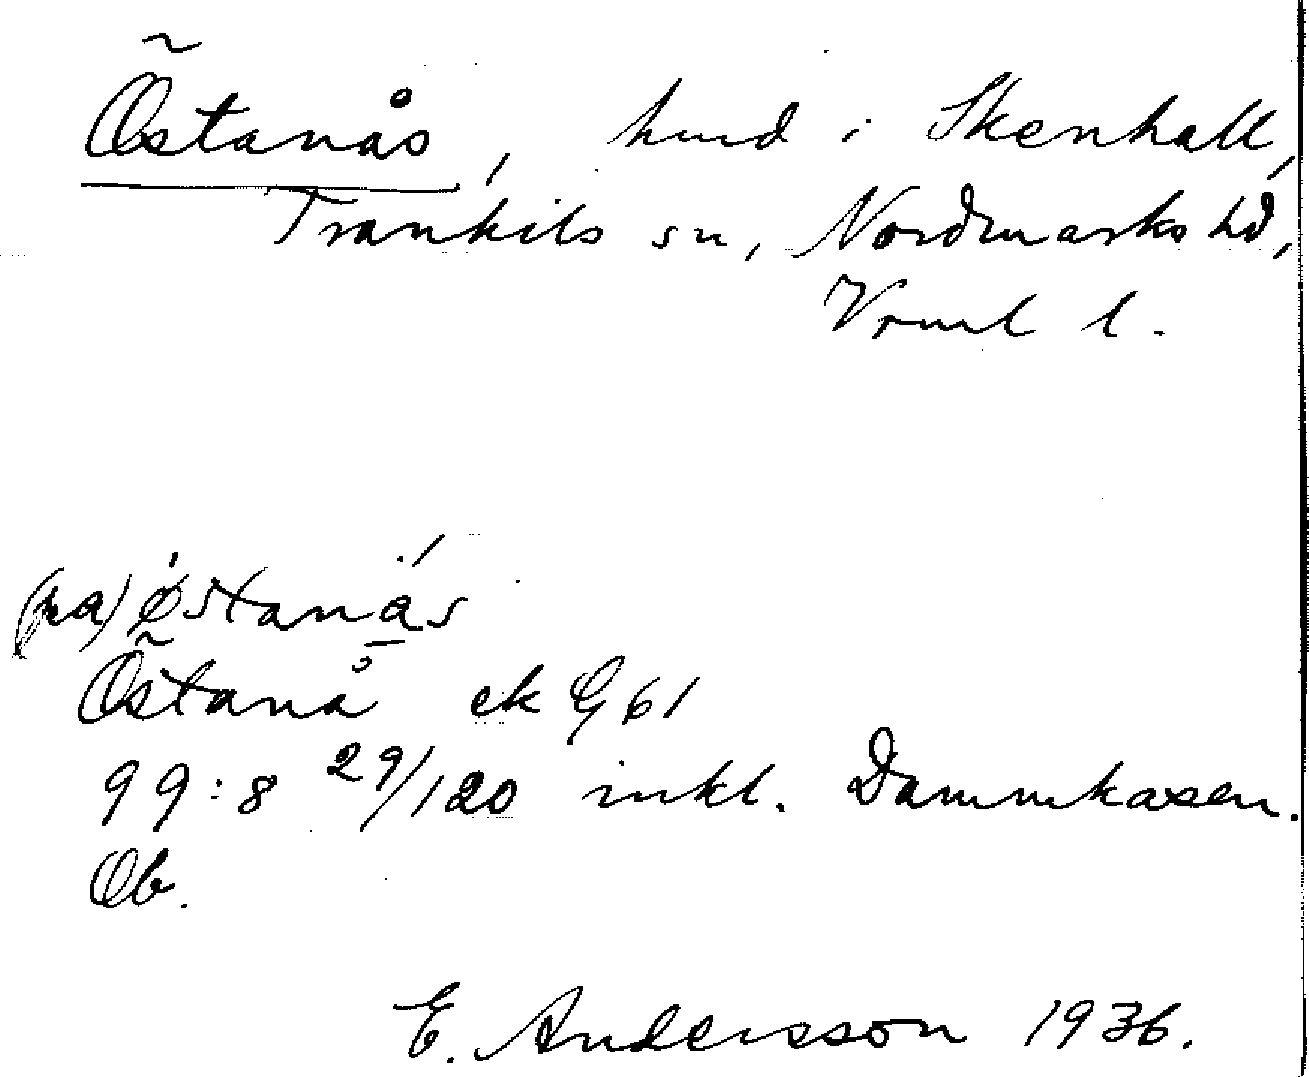 Östanås, hmd i Skenhall,
Trankils sn, Nordmarks hd,
Vrml l.
(na) østanås
Östanå ek G 61
99:8 29/120 inkl. Dammkasen.
Ob.
E. Andersson 1936.